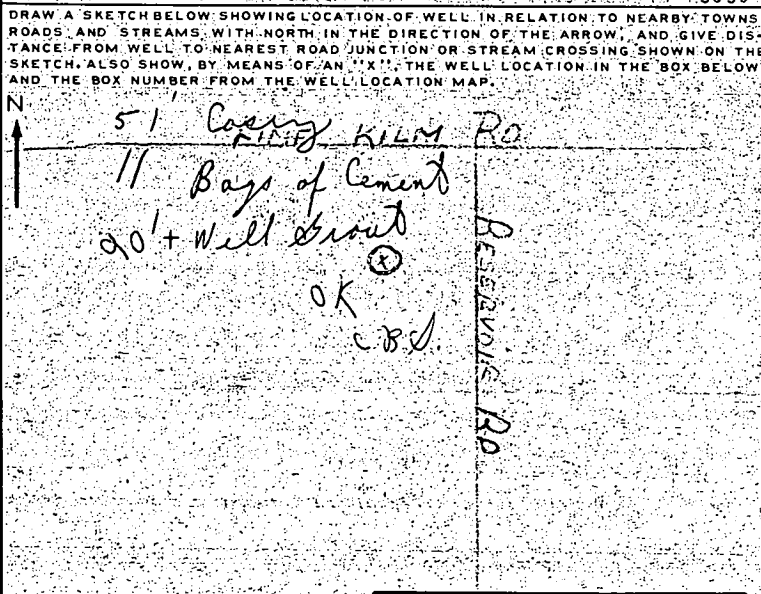 DRAW A SKETCH BELOW SHOWING LOCATION OF WELL IN RELATION TO NEARBY TOWNS
ROADS AND STREAMS WITH NORTH IN THE DIRECTION OF THE ARROW, AND GIVE DIS-
TANCE FROM WELL TO NEAREST ROAD JUNCTION OR STREAM CROSSING SHOWN ON THE
SKETCH. ALSO SHOW, BY MEANS OF AN "X", THE WELL LOCATION IN THE BOX BELOW
AND THE BOX NUMBER FROM THE WELL LOCATION MAP.
N
51' Casing
KILM RD
11 Bags of Cement
20'+ Well Grout
X
OK
C.B.S.
RESERVOIR RD